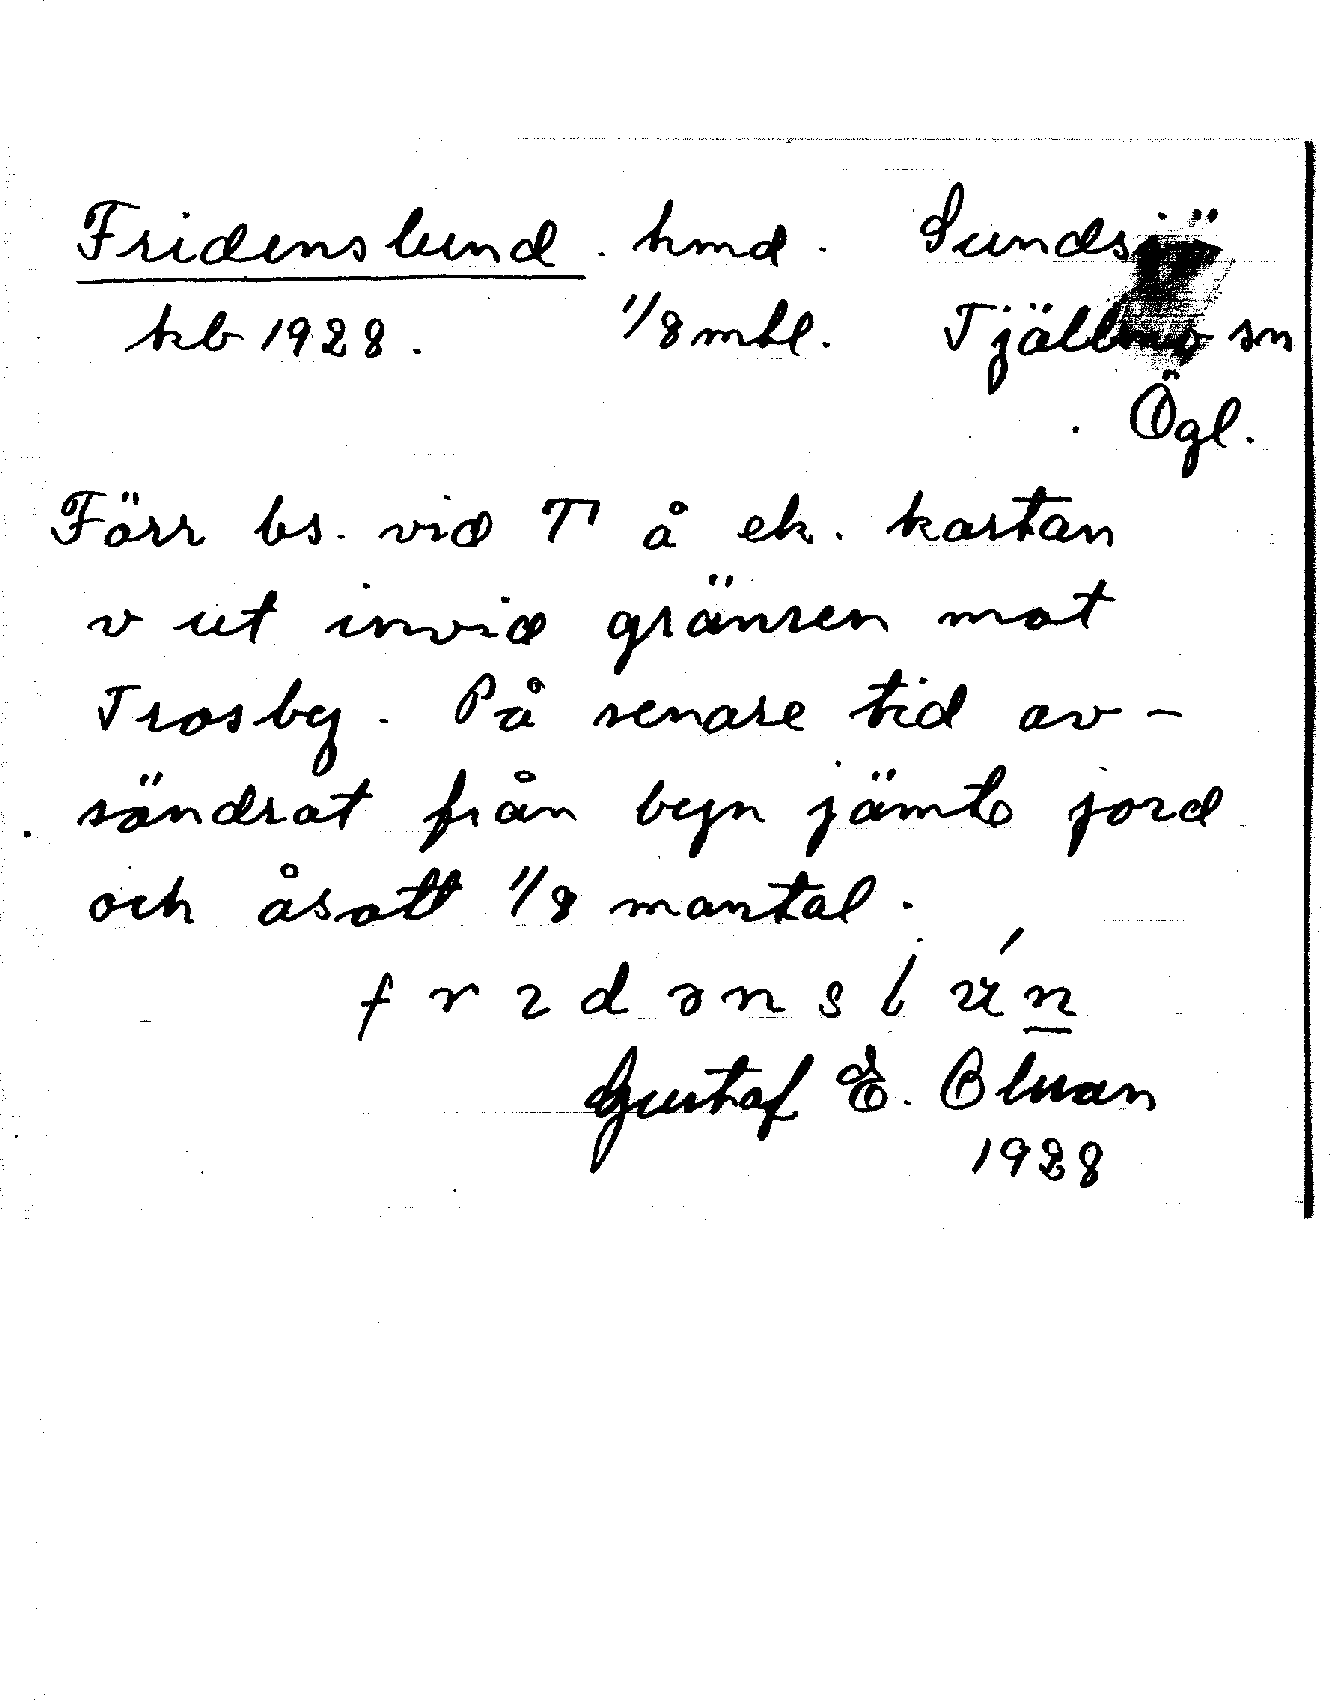 Fridenslund. hmd. Sundsjö
kb 1928. 1/8 mtl. Tjällmo sn
Ögl.
Förr bs. vid T å ek. kartan
v ut invid gränsen mot
Trosby. På senare tid av-
söndrat från byn jämte jord
och åsatt 1/8 mantal.
frıdənslún
Gustaf E. Olsson
1928